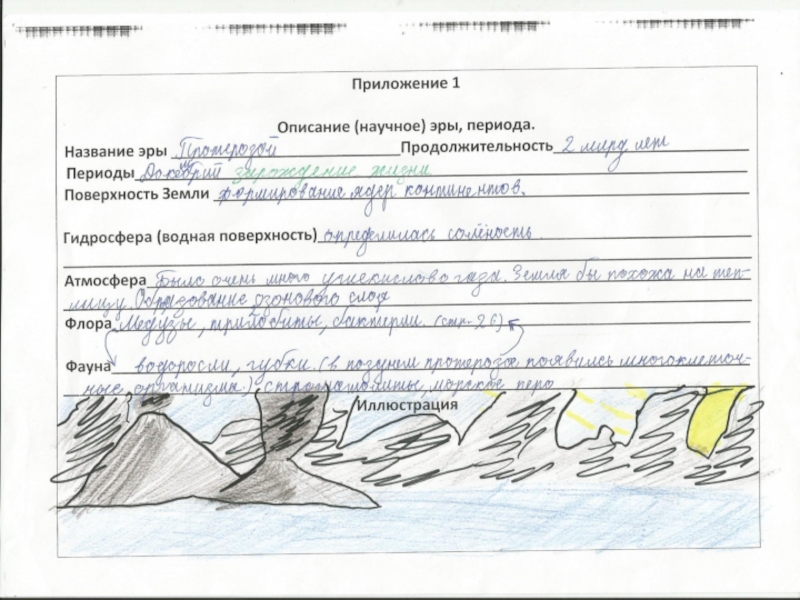 Приложение 1
Описание (научное) эры, периода.
Название эры Протерозой Продолжительность 2 млрд лет
Периоды зарождение жизни
Поверхность Земли формирование ядер континентов.
Гидросфера (водная поверхность) определилась солёность.
Атмосфера Было очень много углекислово газа. Земля бы похожа на теп-
лицу. Образование озонового слоя
Флора Медузы, трилобиты, бактерии. (стр. 26)
Фауна водоросли, губки. (в позднем протерозое появились многоклеточ-
ные организмы.) строматолиты, морское перо
Иллюстрация